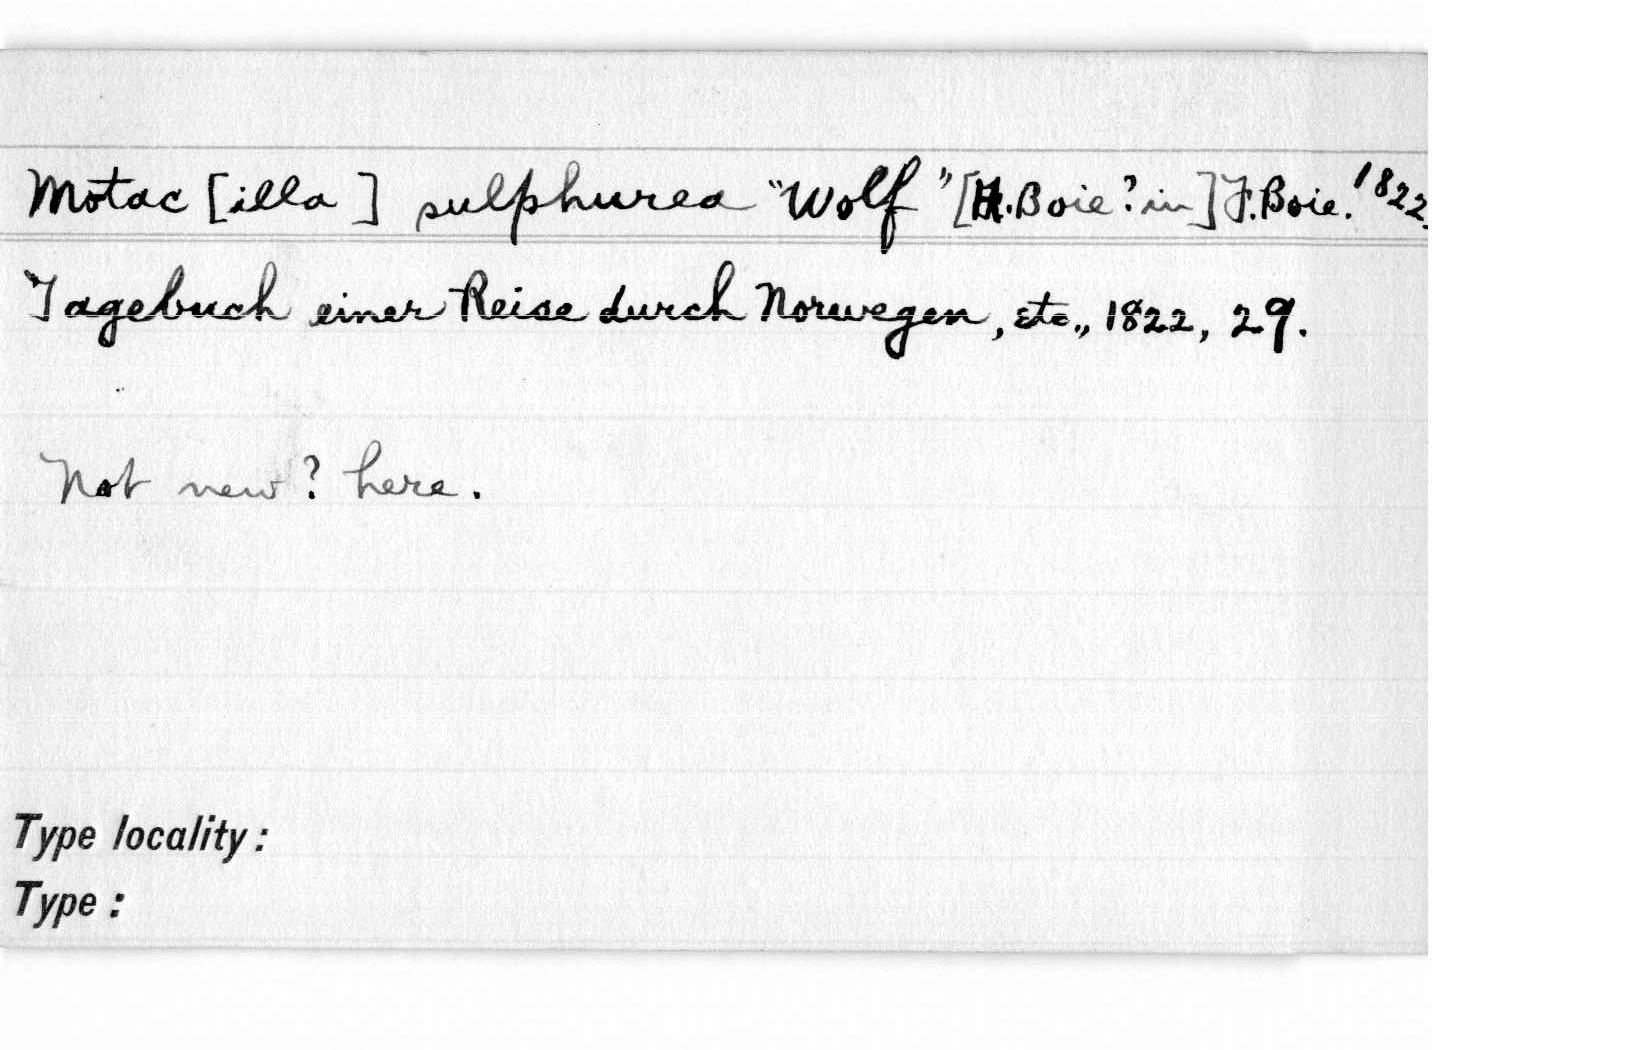 Motac [illa] sulphurea "Wolf" [H. Boie? in] F. Boie. 1822.
Tagebuch einer Reise durch Norwegen, etc., 1822, 29.
Not new? here.
Type locality:
Type: